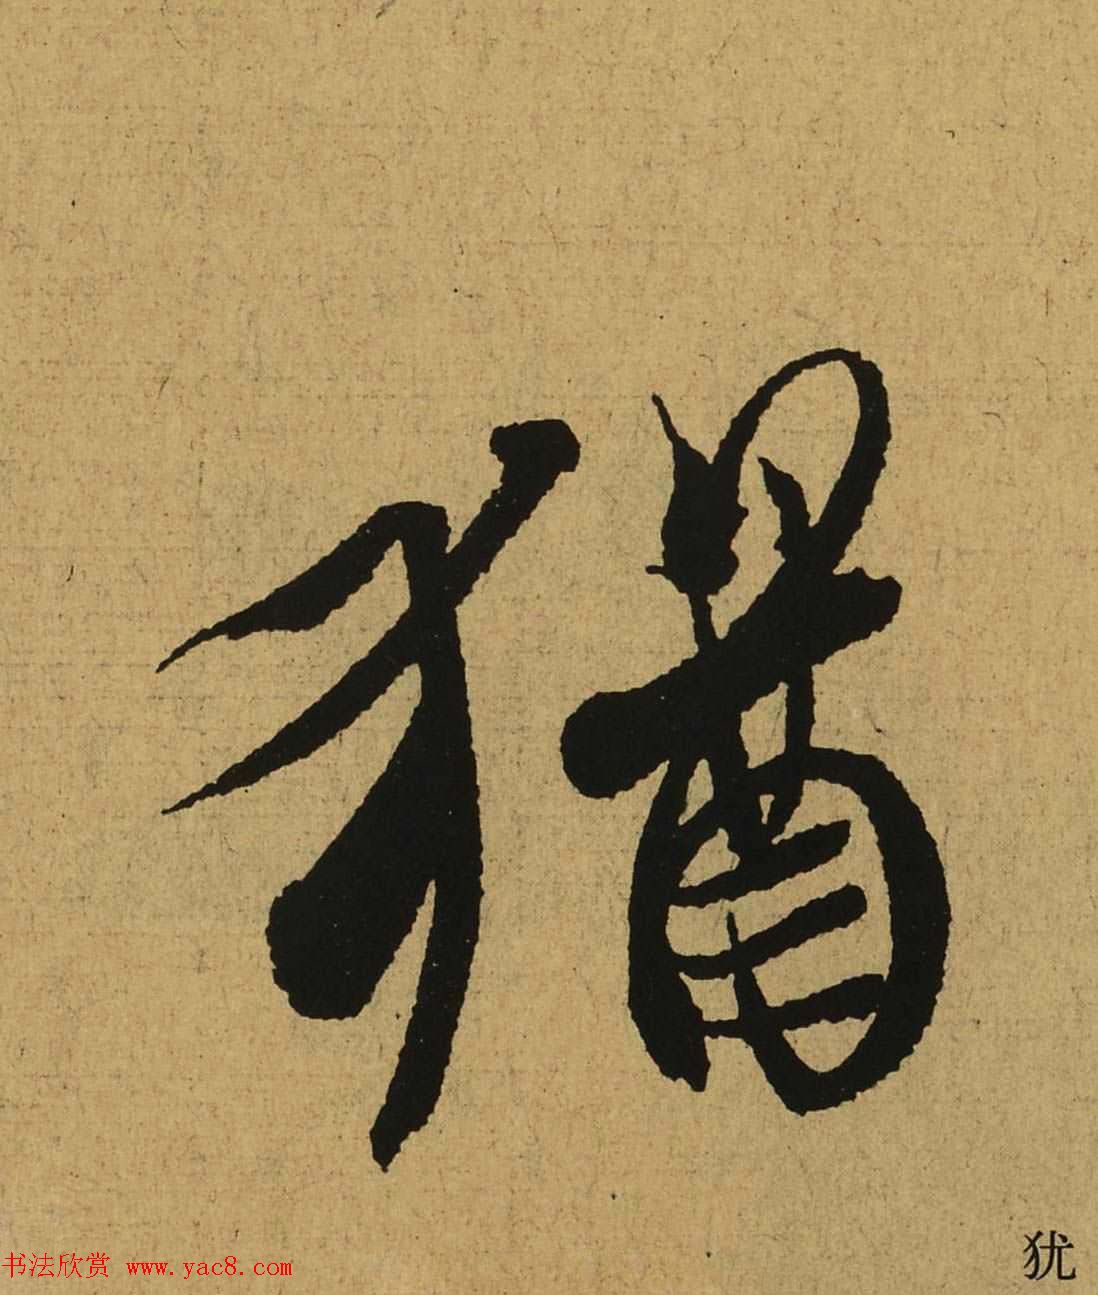 猶
书法欣赏 www.yac8.com
犹